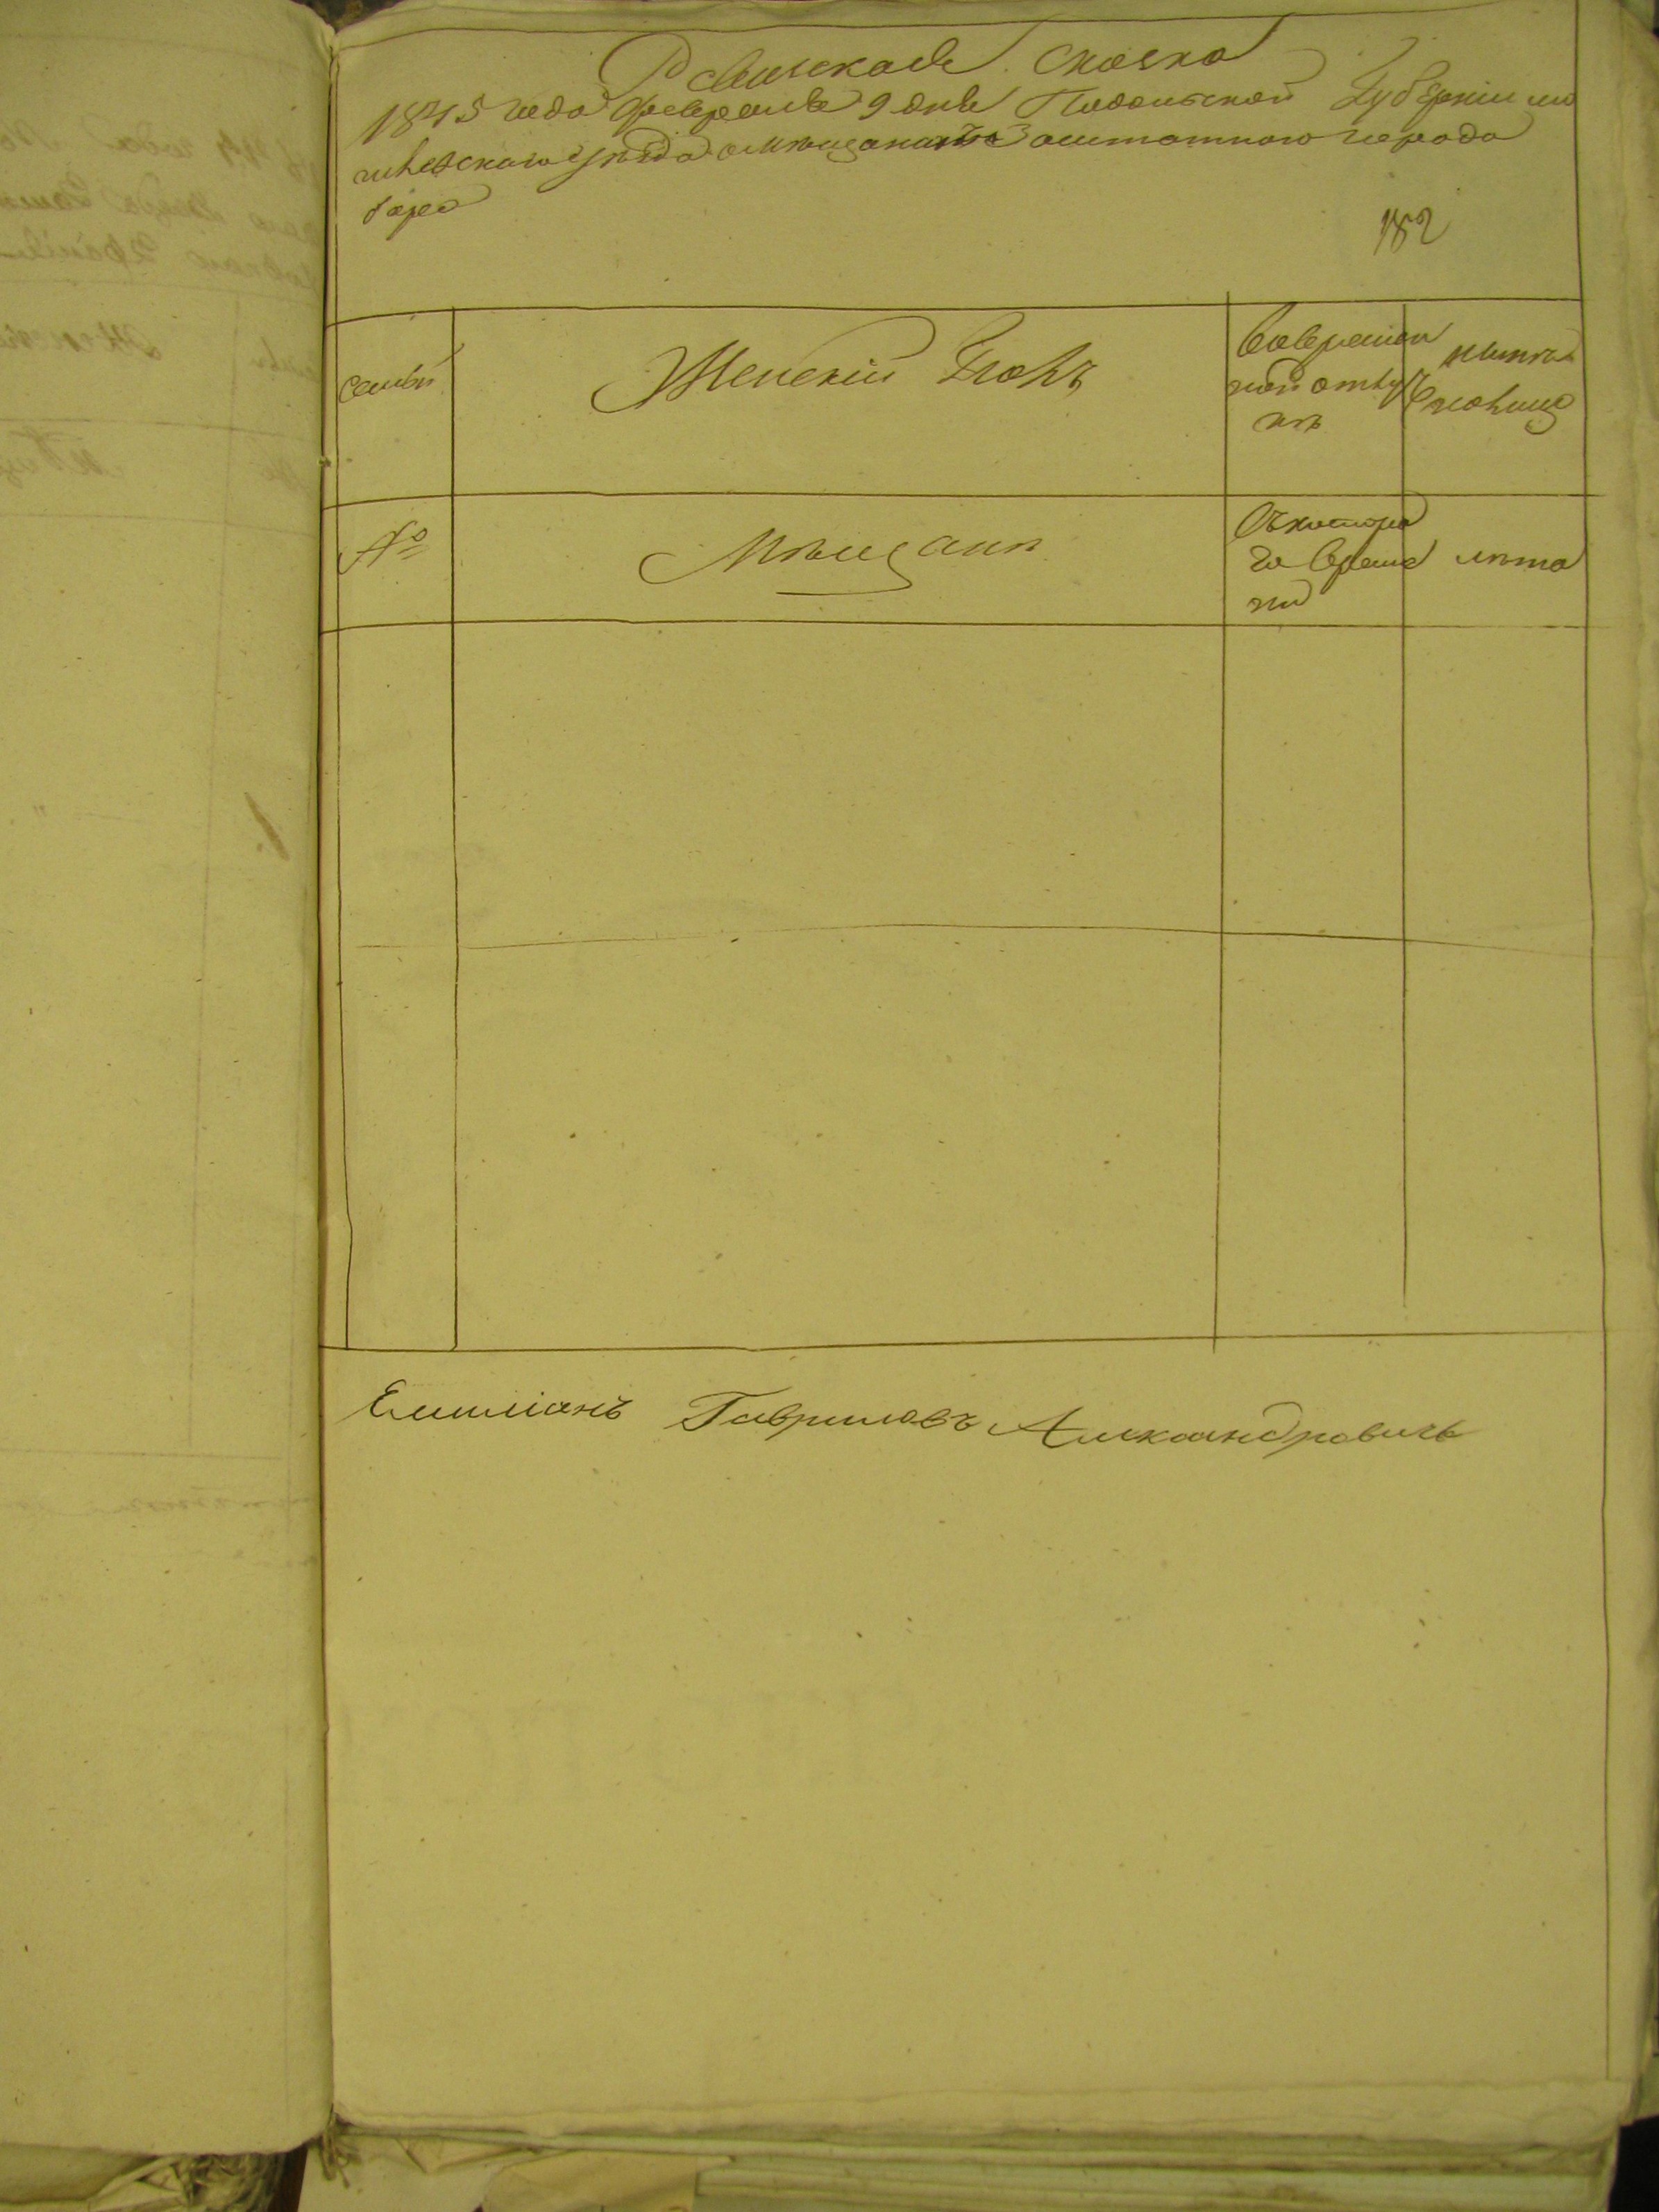 Ревизская Сказка
1845 года февраля 9 дня Подольской Губернии мо
гилевского уезда о мещанахъ Заштатного города
бара
182
Семьи
Женскій Полъ
Вовремен
ной отлу
кѣ
нынѣ
Налицо
№
Мѣщанѣ
Съ котора
го Време
ни
лѣта
Емилианъ Гавриловъ Александровичъ